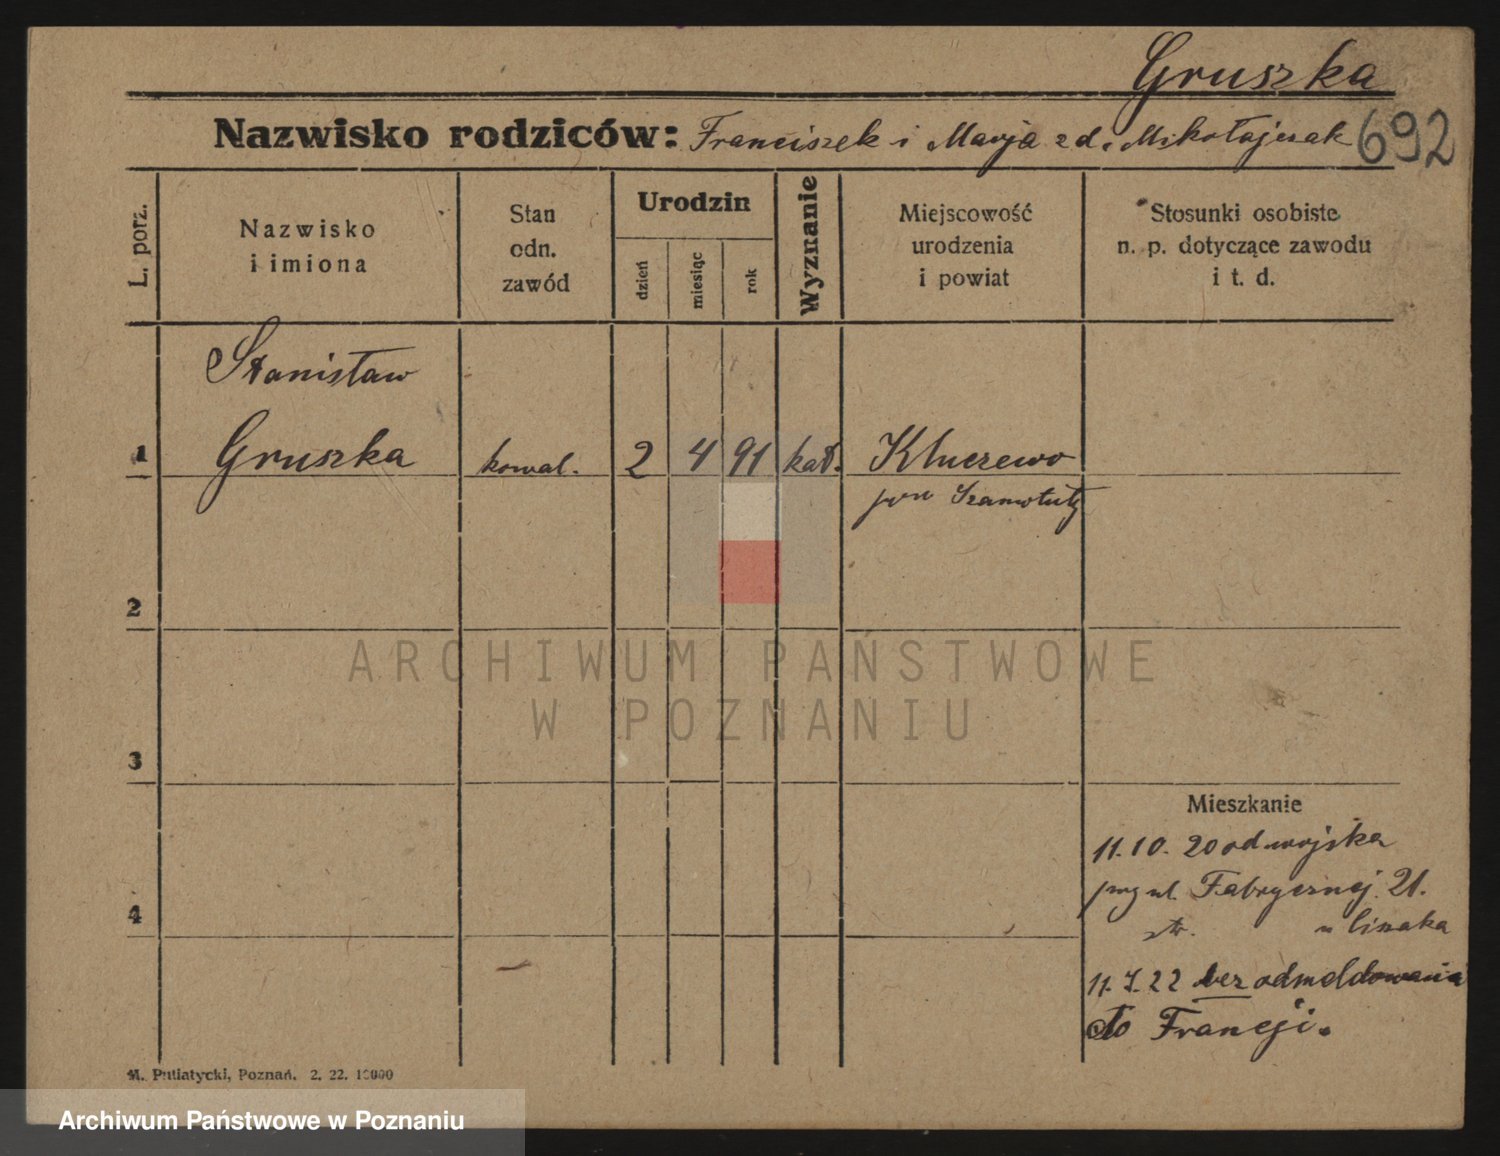 Gruszka
Nazwisko rodziców: Franciszek i Marja zd. Mikołajczak 692
L. porz.
Nazwisko
i imiona
Stan
odn.
zawód
Urodzin
dzień
miesiąc
rok
Wyznanie
Miejscowość
urodzenia
i powiat
Stosunki osobiste
n. p. dotyczące zawodu
i t. d.
Stanisław
1 Gruszka kowal. 2 4 91 kat. Kluczewo
pow Szamotuły
2
ARCHIWUM PAŃSTWOWE
W POZNANIU
3
Mieszkanie
11.10.20 od wojska
przy ul. Fabrycznej 21.
4
u Lisiaka
11.7.22 bez odmeldowania
do Francji.
M. Putiatycki, Poznań. 2. 22. 10000
Archiwum Państwowe w Poznaniu